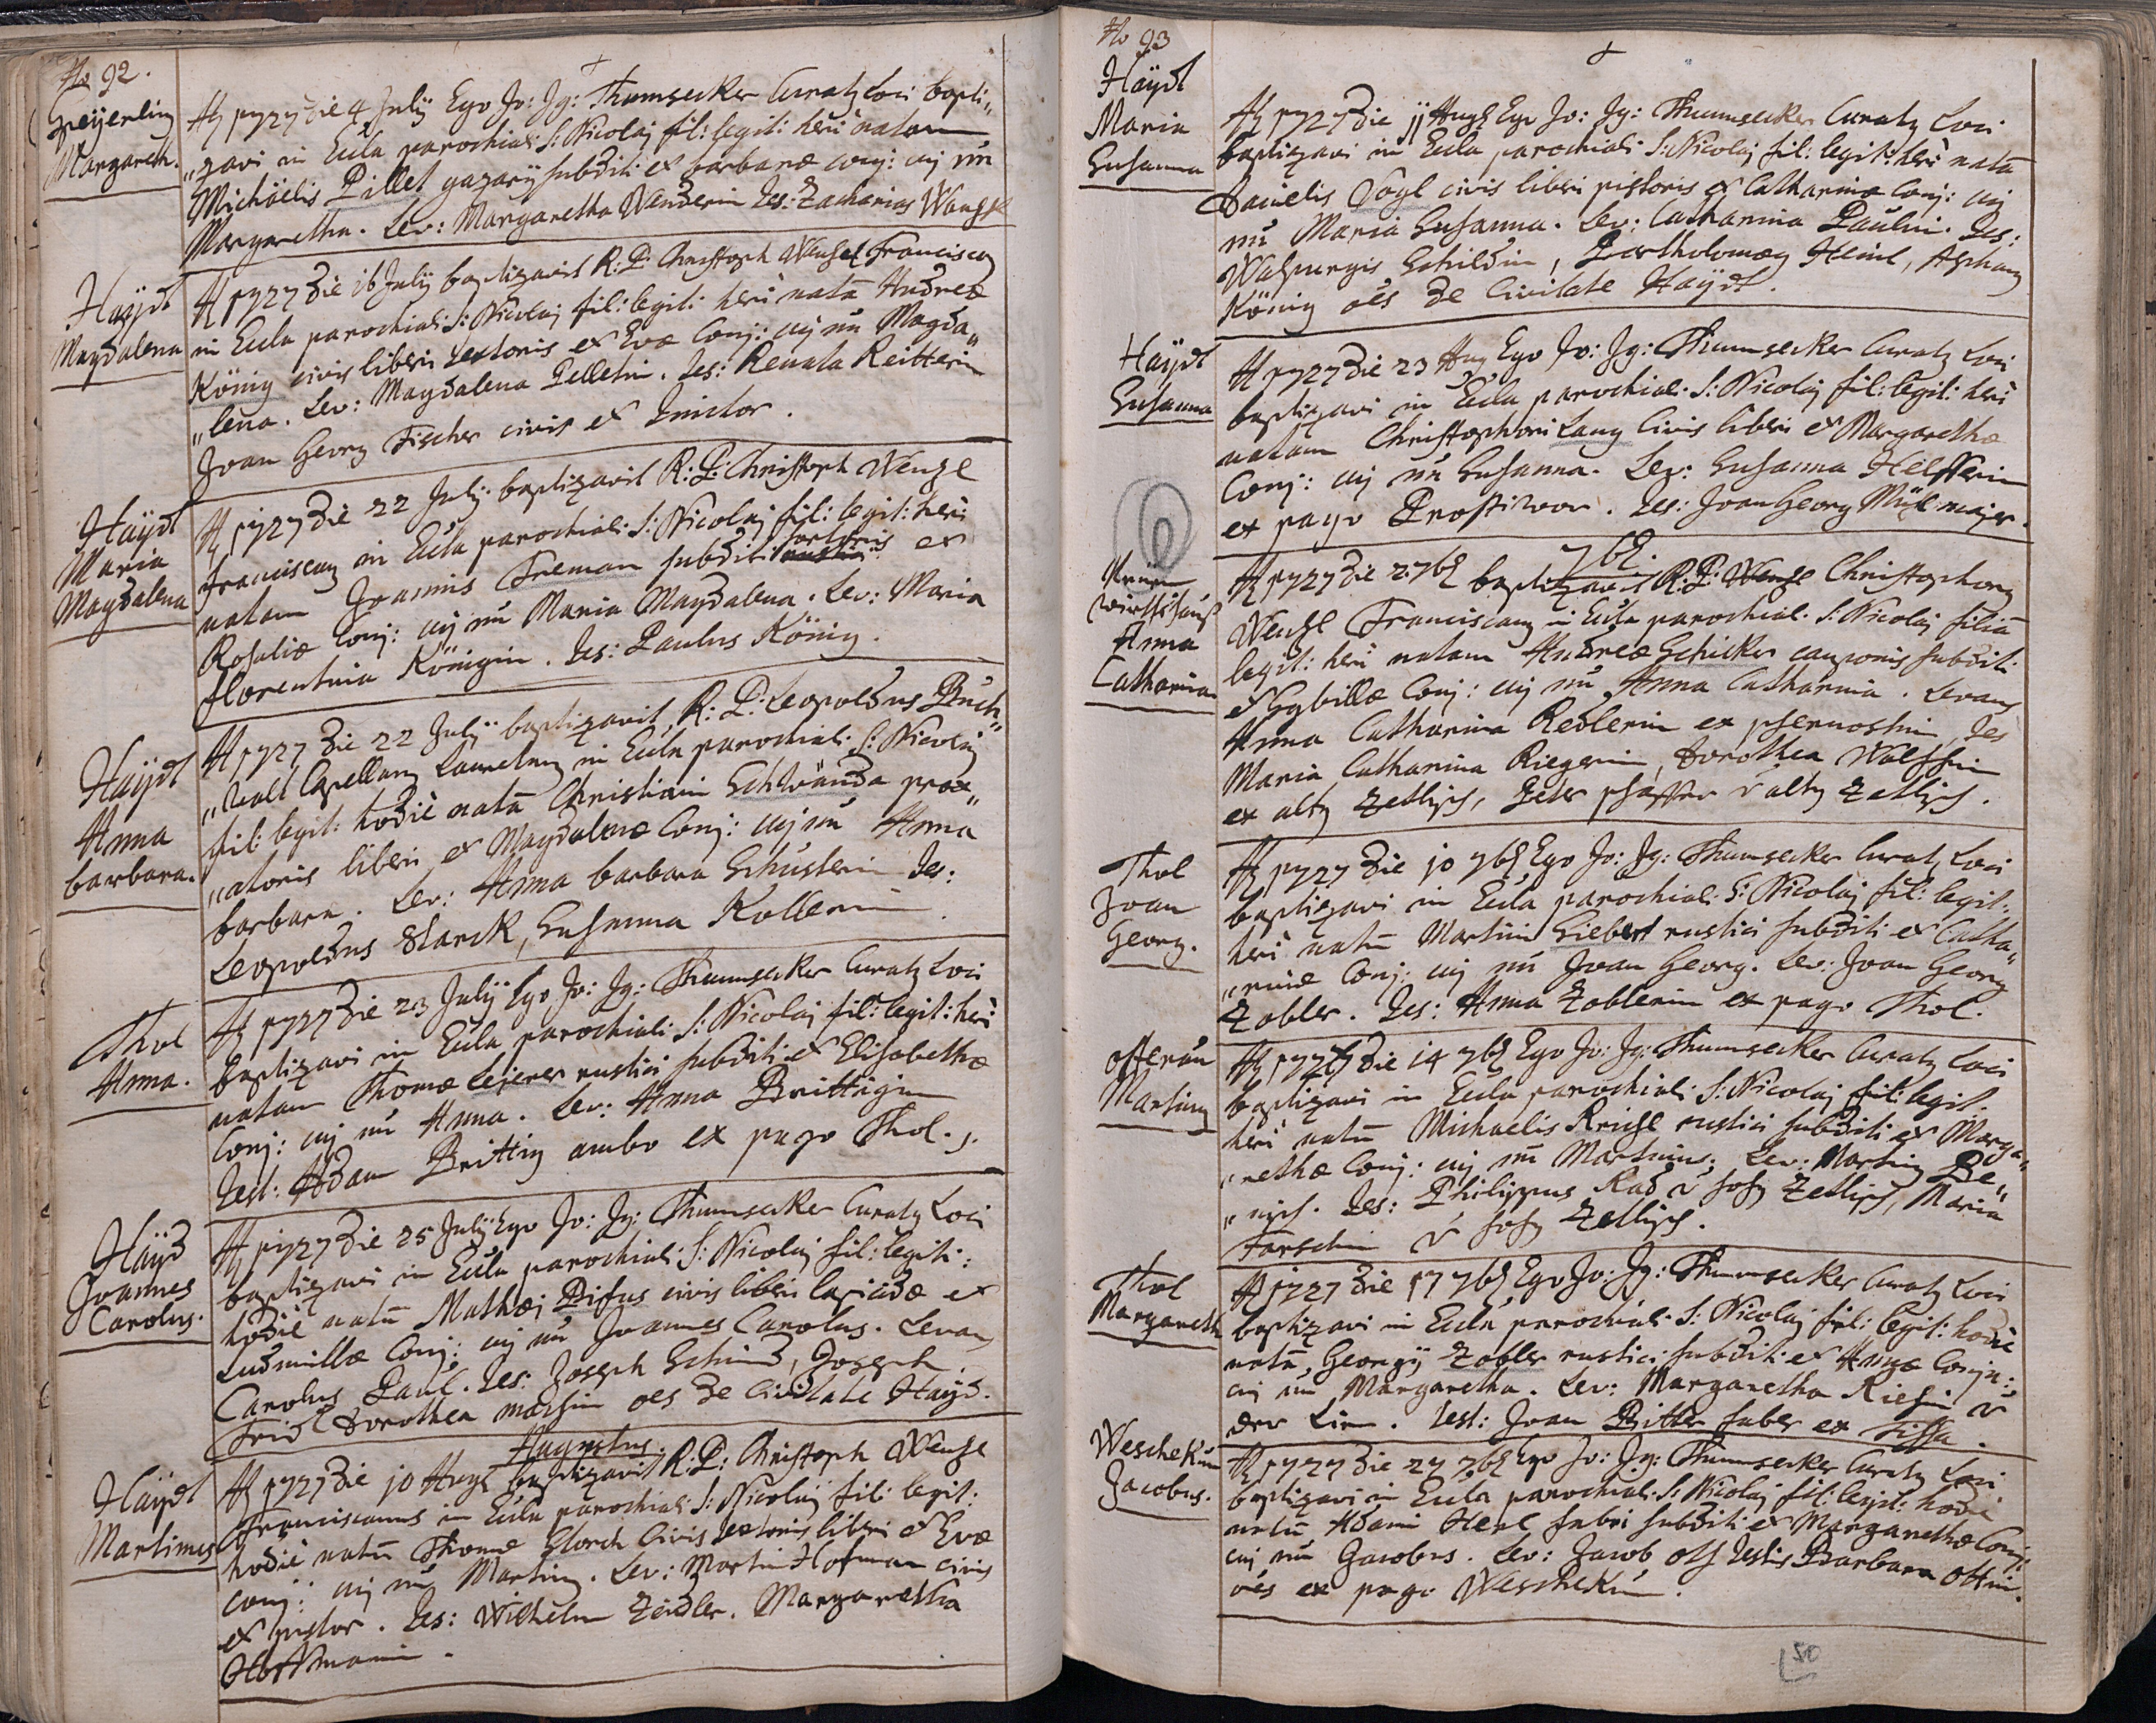 No 92.
Speijerling
Margareth.
Aō 1727 die 4 Julÿ Ego Jo: Ig: Thumsecker Curatq Loci bapti„
„zavi in Eccla parochiali S: Nicolaj fil: legit: heri natam
Michäelis Pillet gazarÿ subditi et barbaræ conj: cuj nn
Margaretha. Lev: Margaretha Wenderin Tes: Zacharias
Haÿdt
Magdalena
Aō 1727 die 16 Julÿ baptizavit R: P: Christoph Wenzel Franciscaq
in Eccla parochiali S: Nicolaj fil: legit: heri natā Andreæ
König civis liberi textoris et Evæ Conj: cuj nn Magda„
„lena. Lev: Magdalena Pelletin. Tes: Renata Reitterin
Joan Georg Fischer civis et
Haÿdt
Maria
Magdalena
Aō 1727 die 22 Julÿ baptizavit R: P: Christoph Wenzl
franciscanq in Eccla parochiali S: Nicolaj fil: legit: heri
natam Joannis Freman subditi sartoris et
Rosaliæ Conj: cuj nn Maria Magdalena. Lev: Maria
florentina Königin. Tes: Paulus König.
Haÿdt
Anna
barbara.
Aō 1727 die 22 Julÿ baptizavit R: P: Leopoldus Buch„
„walt Capellanq Lauretanq in Eccla parochiali S: Nicolaj
fil: legit: hodiè natā Christiani Schwanda prox„
„atoris liberi et Magdalenæ Conj: cuj nn Anna
barbara. Lev: Anna barbara Schusterin Tes:
Leopoldus Starck, Susanna Kollerin.
Thol
Anna.
Aō 1727 die 23 Julÿ Ego Jo: Ig: Thumsecker Curatq Loci
baptizavi in Eccla parochiali S: Nicolaj fil: legit: heri
natam Thomæ Lejerer rustici subditi et Elisabethæ
Conj: cuj nn Anna. Lev: Anna Brittigin
Test: Adam Brittig ambo ex pago Thol.
Haÿd
Joannes
Carolus.
Aō 1727 die 25 Julÿ Ego Jo: Ig: Thumsecker Curatq Loci
baptizavi in Eccla parochiali S: Nicolaj fil: legiti:
hodiè natū Mathæj Disus civis liberi lapicidæ et
Ludmillæ Conj: cuj nn Joannes Carolus. Levanq
Carolus Paul. Tes: Joseph Schmid, Joseph
Fridl Dorothea oes de Civitate Haÿd.
Augustus.
Haÿdt
Martinus
Aō 1727 die 10 Augl baptizavit R: P: Christoph Wenzl
Franciscanus in Eccla parochiali S: Nicolaj fil: legit:
hodiè natū Thomæ Storch Civis textoris liberi et Evæ
Conj: cuj nn Martinq. Lev: Martin Hofman civis
et pistor. Tes: Wilhelm Zeidler. Margaretha
Hoffmanin.
No 93
Haÿdt
Maria
Susanna
Aō 1727 die 11 Augl Ego Jo: Ig: Thumsecker Curatq Loci
baptizavi in Eccla parochiali S: Nicolaj fil: legit: heri natā
Danielis Vogl civis liberi pistoris et Catharinæ Conj: cuj
nn Maria Susanna. Lev: Catharina Paulin. Tes:
Walpurgis Schildin, Bartholomæq Heinl,
König oēs de Civitate Haÿdt.
Haÿdt
Susanna
Aō 1727 die 23 Aug Ego Jo: Ig: Thumsecker Curatq Loci
baptizavi in Eccla parochiali S: Nicolaj fil: legit: heri
natam Christophori Lang Civis liberi et Margarethæ
Conj: cuj nn Susanna. Lev: Susanna Helfferin
ex pago Prostiwor. Tes: Joan Georg major.
7bl.
wirthshauß
Anna
Catharina
Aō 1727 die 2 7bl baptizavit R: P: Wenzl Christophorq
Wenzl Franciscanq in Eccla parochial: S: Nicolaj filiā
legit: heri natam Andreæ Schicker cauponis subditi
et Sybillæ Conj: cuj nn Anna Catharina. Levans
Anna Catharina Redlerin ex Tes
Maria Catharina Riegerin, Dorothea Wolffin
ex altz Zetlisch, Peter v altz Zetlisch.
Thol
Joan
Georg.
Aō 1727 die 10 7bl Ego Jo: Ig: Thumsecker Curatq Loci
baptizavi in Eccla parochiali S: Nicolaj fil: legit:
heri natū Martini Siebert rustici subditi et Catha„
„rinæ Conj: cuj nn Joan Georg. Lev: Joan Georg
Zobler. Tes: Anna Zoblerin ex pago Thol.
Ostraun
Martinq
Aō 1727 die 14 7bl Ego Jo: Ig: Thumsecker Curatq Loci
baptizavi in Eccla parochiali S: Nicolaj fil: legit.
heri natū Michaelis Reichl rustici subditi et Marga„
„rethæ Conj: cuj nn Martinus. Lev: Martinq Be„
„nisch. Tes: Philippus Rad v hoh Zetlisch, Maria
v hoh Zetlisch.
Thol
Margareth
Aō 1727 die 17 7bl Ego Jo: Ig: Thumsecker Curatq Loci
baptizavi in Eccla parochiali S: Nicolaj fil: legit: hodiè
natā, Georgÿ Zobler rustici subditi et Annæ Conju:
cuj nn Margaretha. Lev: Margaretha v
der Lim. Test: Joan Bitter faber ex Tissa.
Weschekun
Jacobus.
Aō 1727 die 27 7bl Ego Jo: Ig: Thumsecker Curatq Loci
baptizavi in Eccla parochiali S: Nicolaj fil: legit: hodiè
natū Adami Heal fabri subditi et Margarethæ Conj:
cuj nn Jacobus. Lev: Jacob Ott Testis Barbara Ottin.
oēs ex pago Weschekun.
50